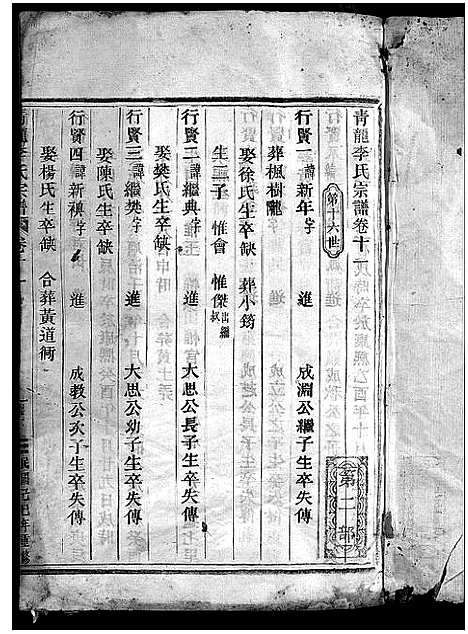 青龍李氏宗譜卷十一
第十六世
第二部
行賢一 諱新年 字 進 成淵公繼子生卒失傳
葬楓樹隴
娶徐氏生卒缺 葬小筠
生二子 惟會 惟傑出繼叔
行賢二 諱繼典 字 進 大思公長子生卒失傳
娶樊氏生卒缺
行賢三 諱繼樊 字 進 大思公幼子生卒失傳
娶陳氏生卒缺
行賢四 諱新稹 字 進 成教公次子生卒失傳
娶楊氏生卒缺 合葬黃道衕